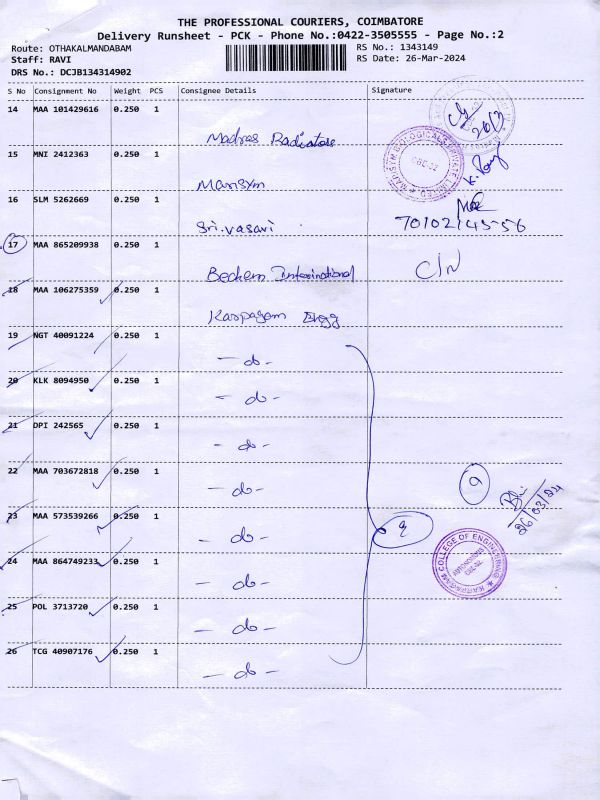 THE PROFESSIONAL COURIERS, COIMBATORE
Delivery Runsheet - PCK - Phone No.:0422-3505555 - Page No.:2
Route: OTHAKALMANDABAM
Staff: RAVI
DRS No.: DCJB134314902
RS No.: 1343149
RS Date: 26-Mar-2024
S No Consignment No Weight PCS Consignee Details Signature
14 MAA 101429616 0.250 1
Madras Radiators
15 MNI 2412363 0.250 1
Marisym
16 SLM 5262669 0.250 1
Sri.vasavi
70102/45556
17 MAA 865209938 0.250 1
Bechem International
C/N
18 MAA 106275359 0.250 1
Karpagam Engg
19 NGT 40091224 0.250 1
- do -
20 KLK 8094950 0.250 1
- do -
21 DPI 242565 0.250 1
- do -
22 MAA 703672818 0.250 1
- do -
23 MAA 573539266 0.250 1
- do -
24 MAA 864749233 0.250 1
- do -
25 POL 3713720 0.250 1
- do -
26 TCG 40907176 0.250 1
- do -
9
9
26/03/24
KARPAGAM COLLEGE OF ENGINEERING
AUTONOMOUS
CBE-32